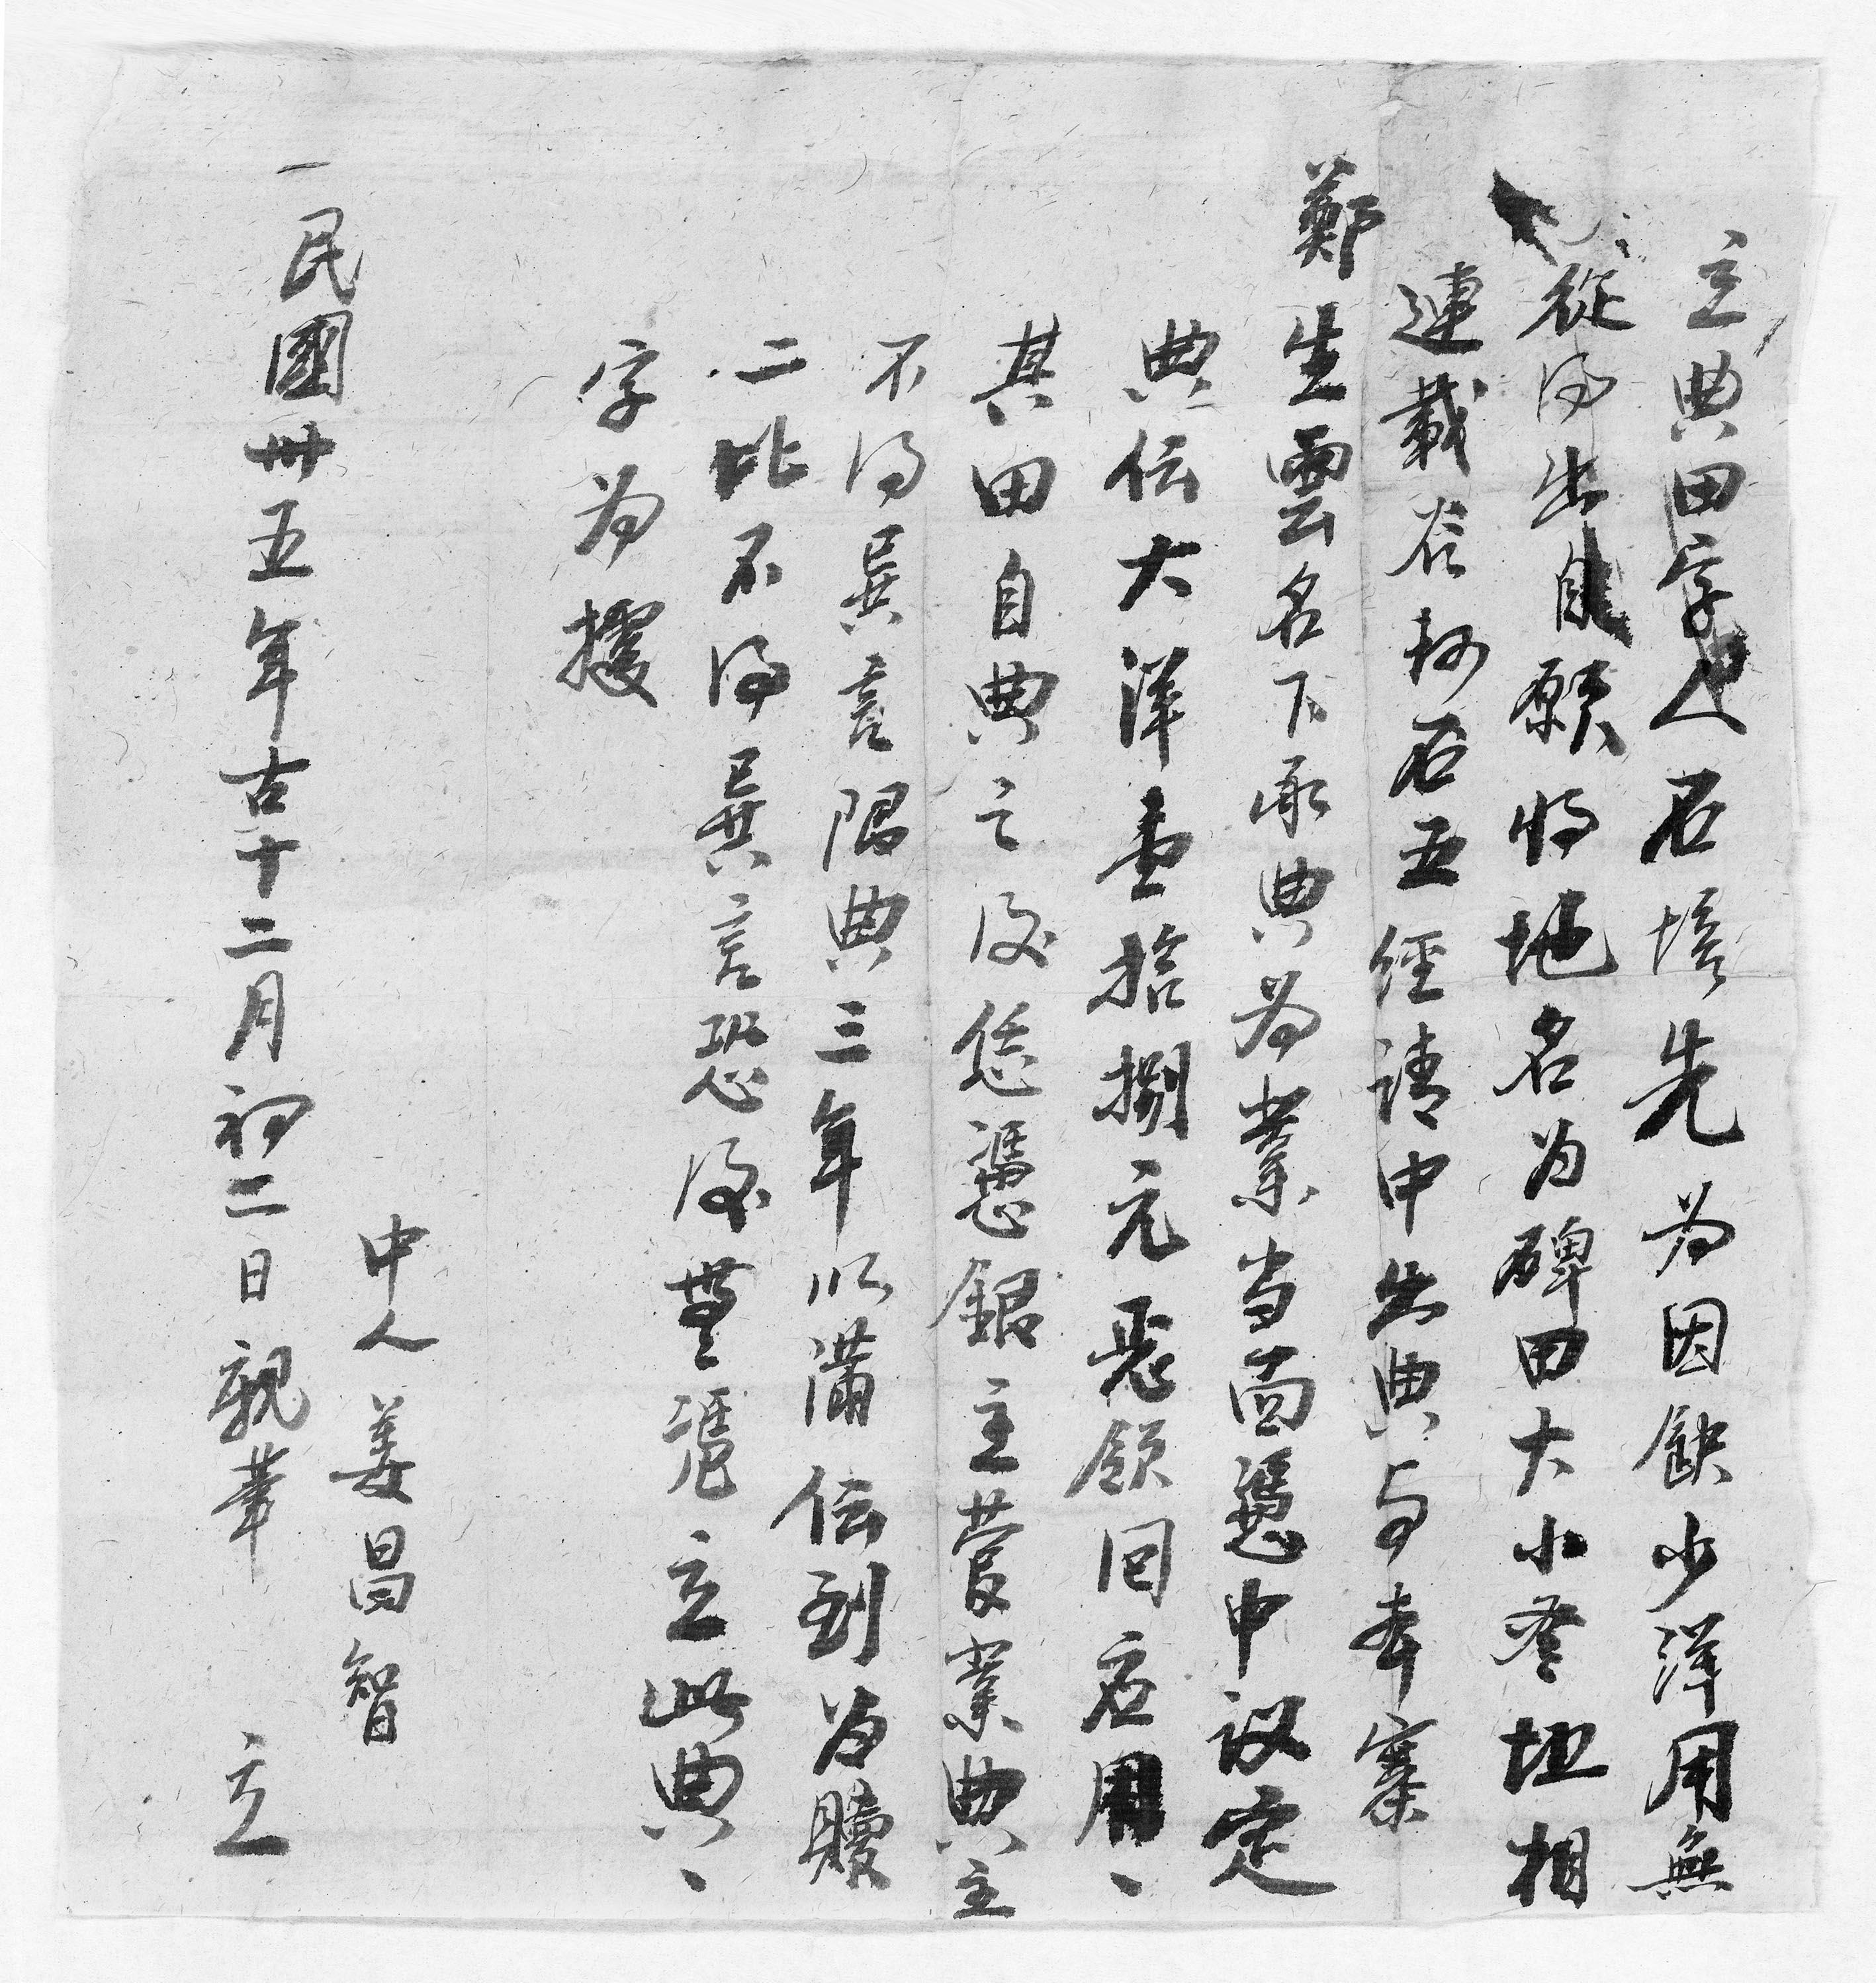 立典田字人石培先為因缺少洋用無
從得出自願将地名为碑田大小叁坵相
連載谷拾石五經請中出典与本寨
鄭生雲名下承典為業当面憑中议定
典伝大洋壹拾捌元悉领回应用、
其田自典之後恁憑銀主管業典主
不得異言限典三年以满伝到为贖
二比不得異言恐後無憑立此典、
字为據
中人姜昌智
民國卅五年古十二月初二日親筆 立